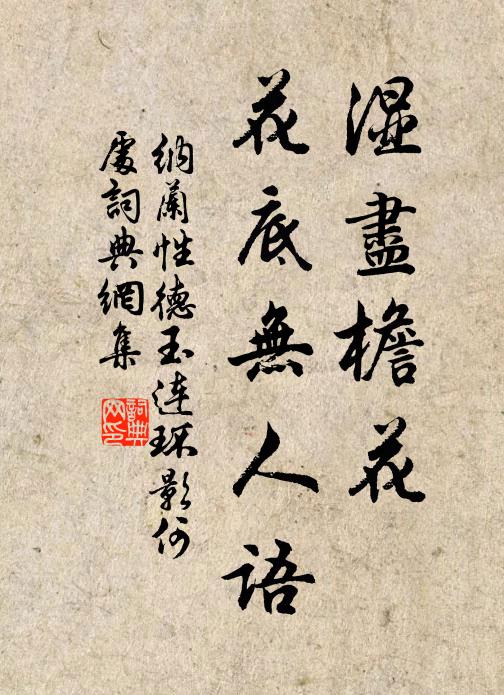 濕盡檐花
花底無人語
納蘭性德玉連环影何
處詞典網集
詞典
网印